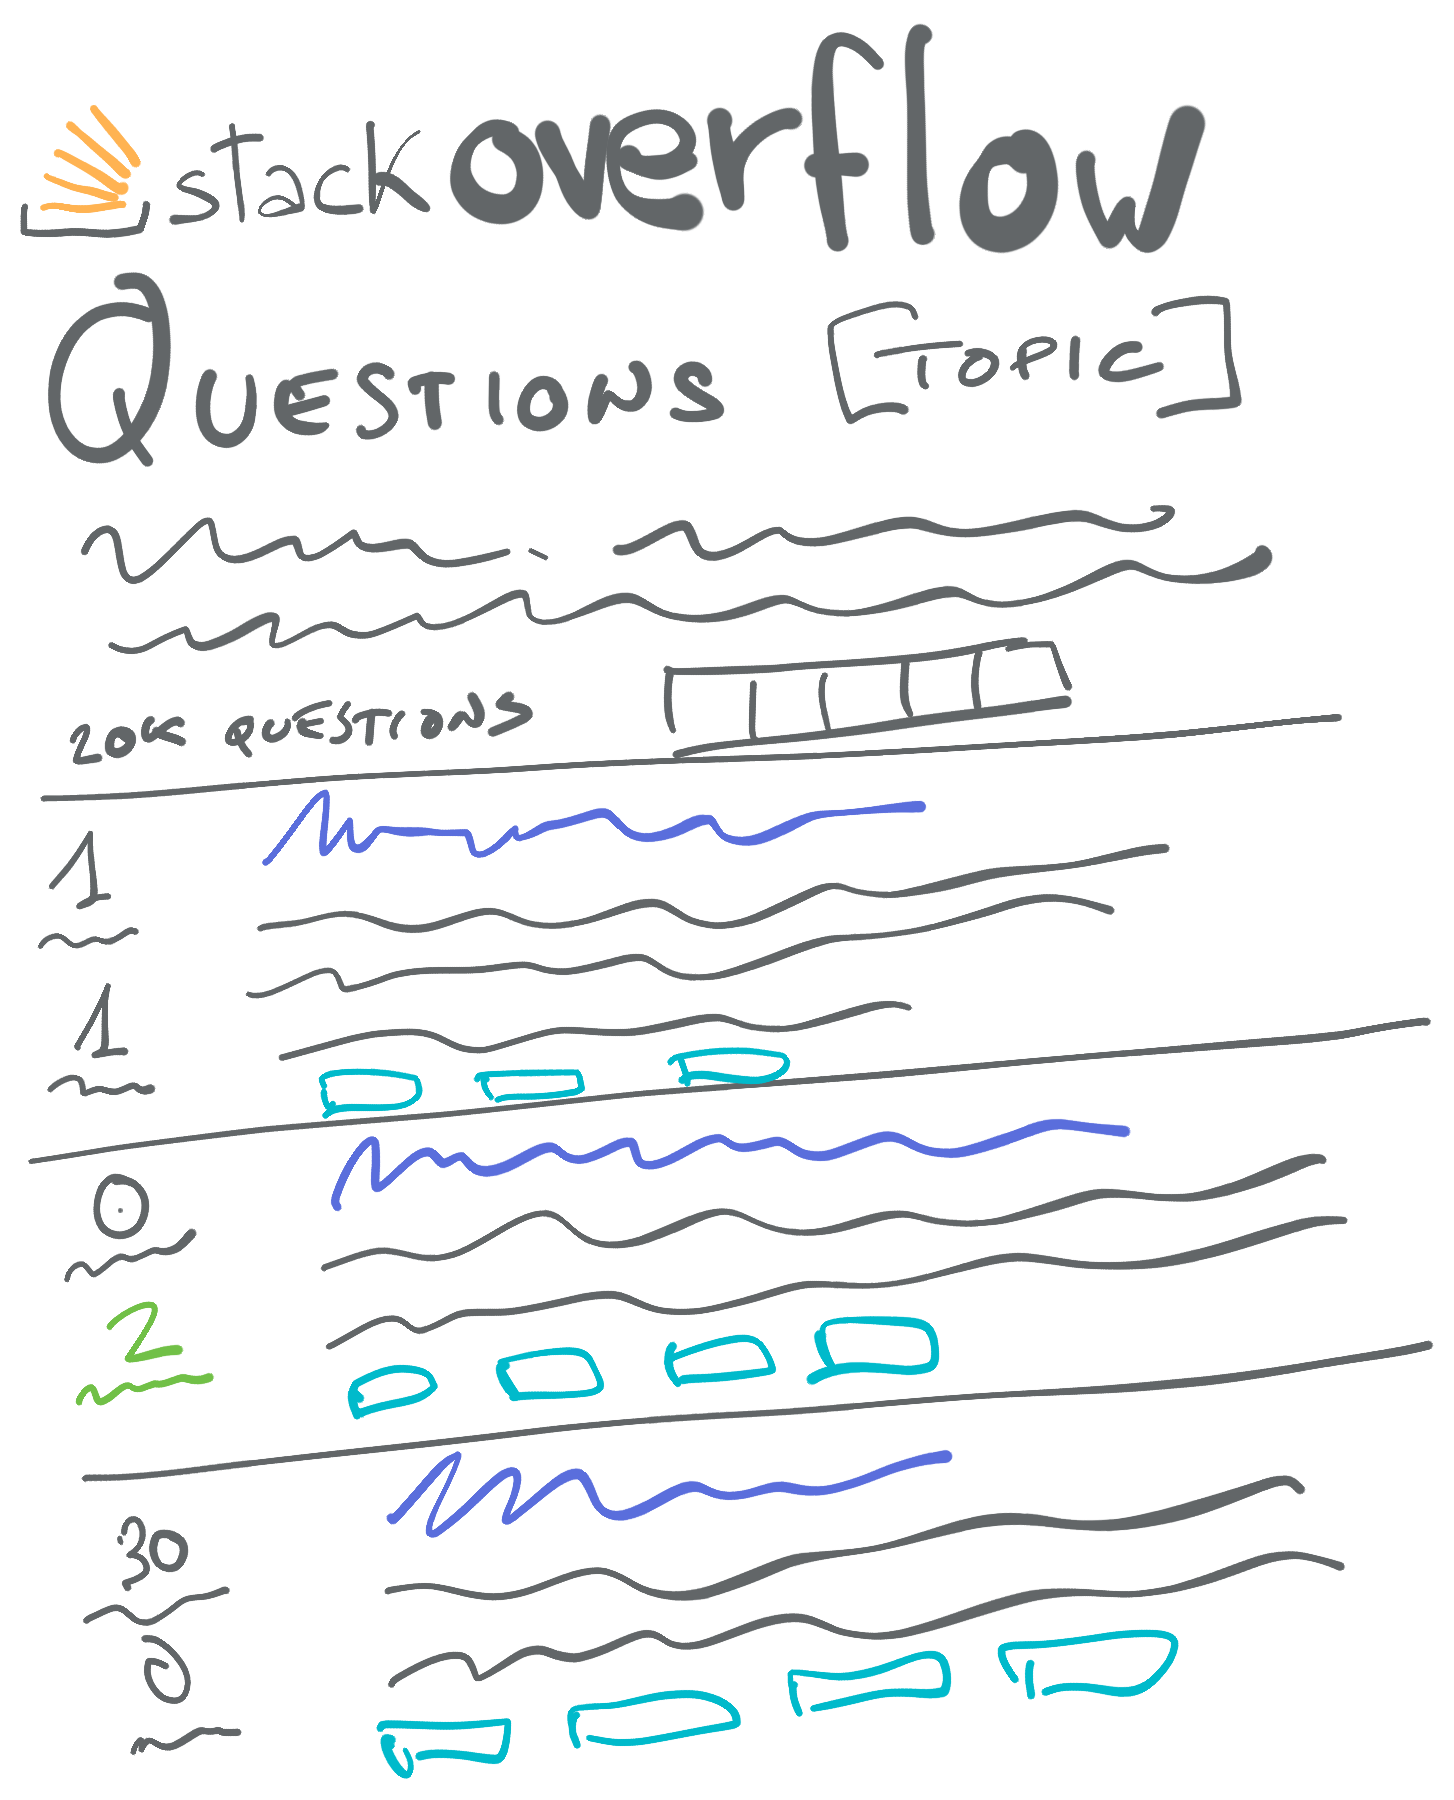 stackoverflow
QUESTIONS [TOPIC]
20K QUESTIONS
1
1
0
2
30
0